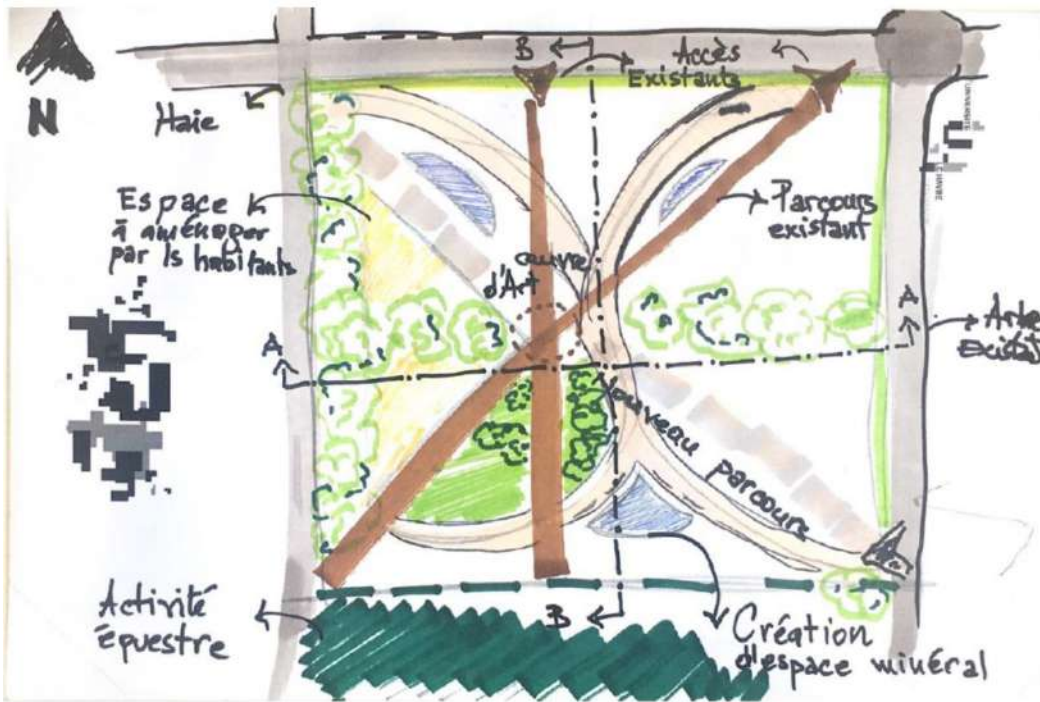 N
Haie
B
Accès
Existants
UNIVERSITE
Espace
à aménager
par ls habitants
Parcours
existant
œuvre
d'Art
A
A
Arbre
Existant
Nouveau parcours
Activité
équestre
B
Création
d'espace minéral